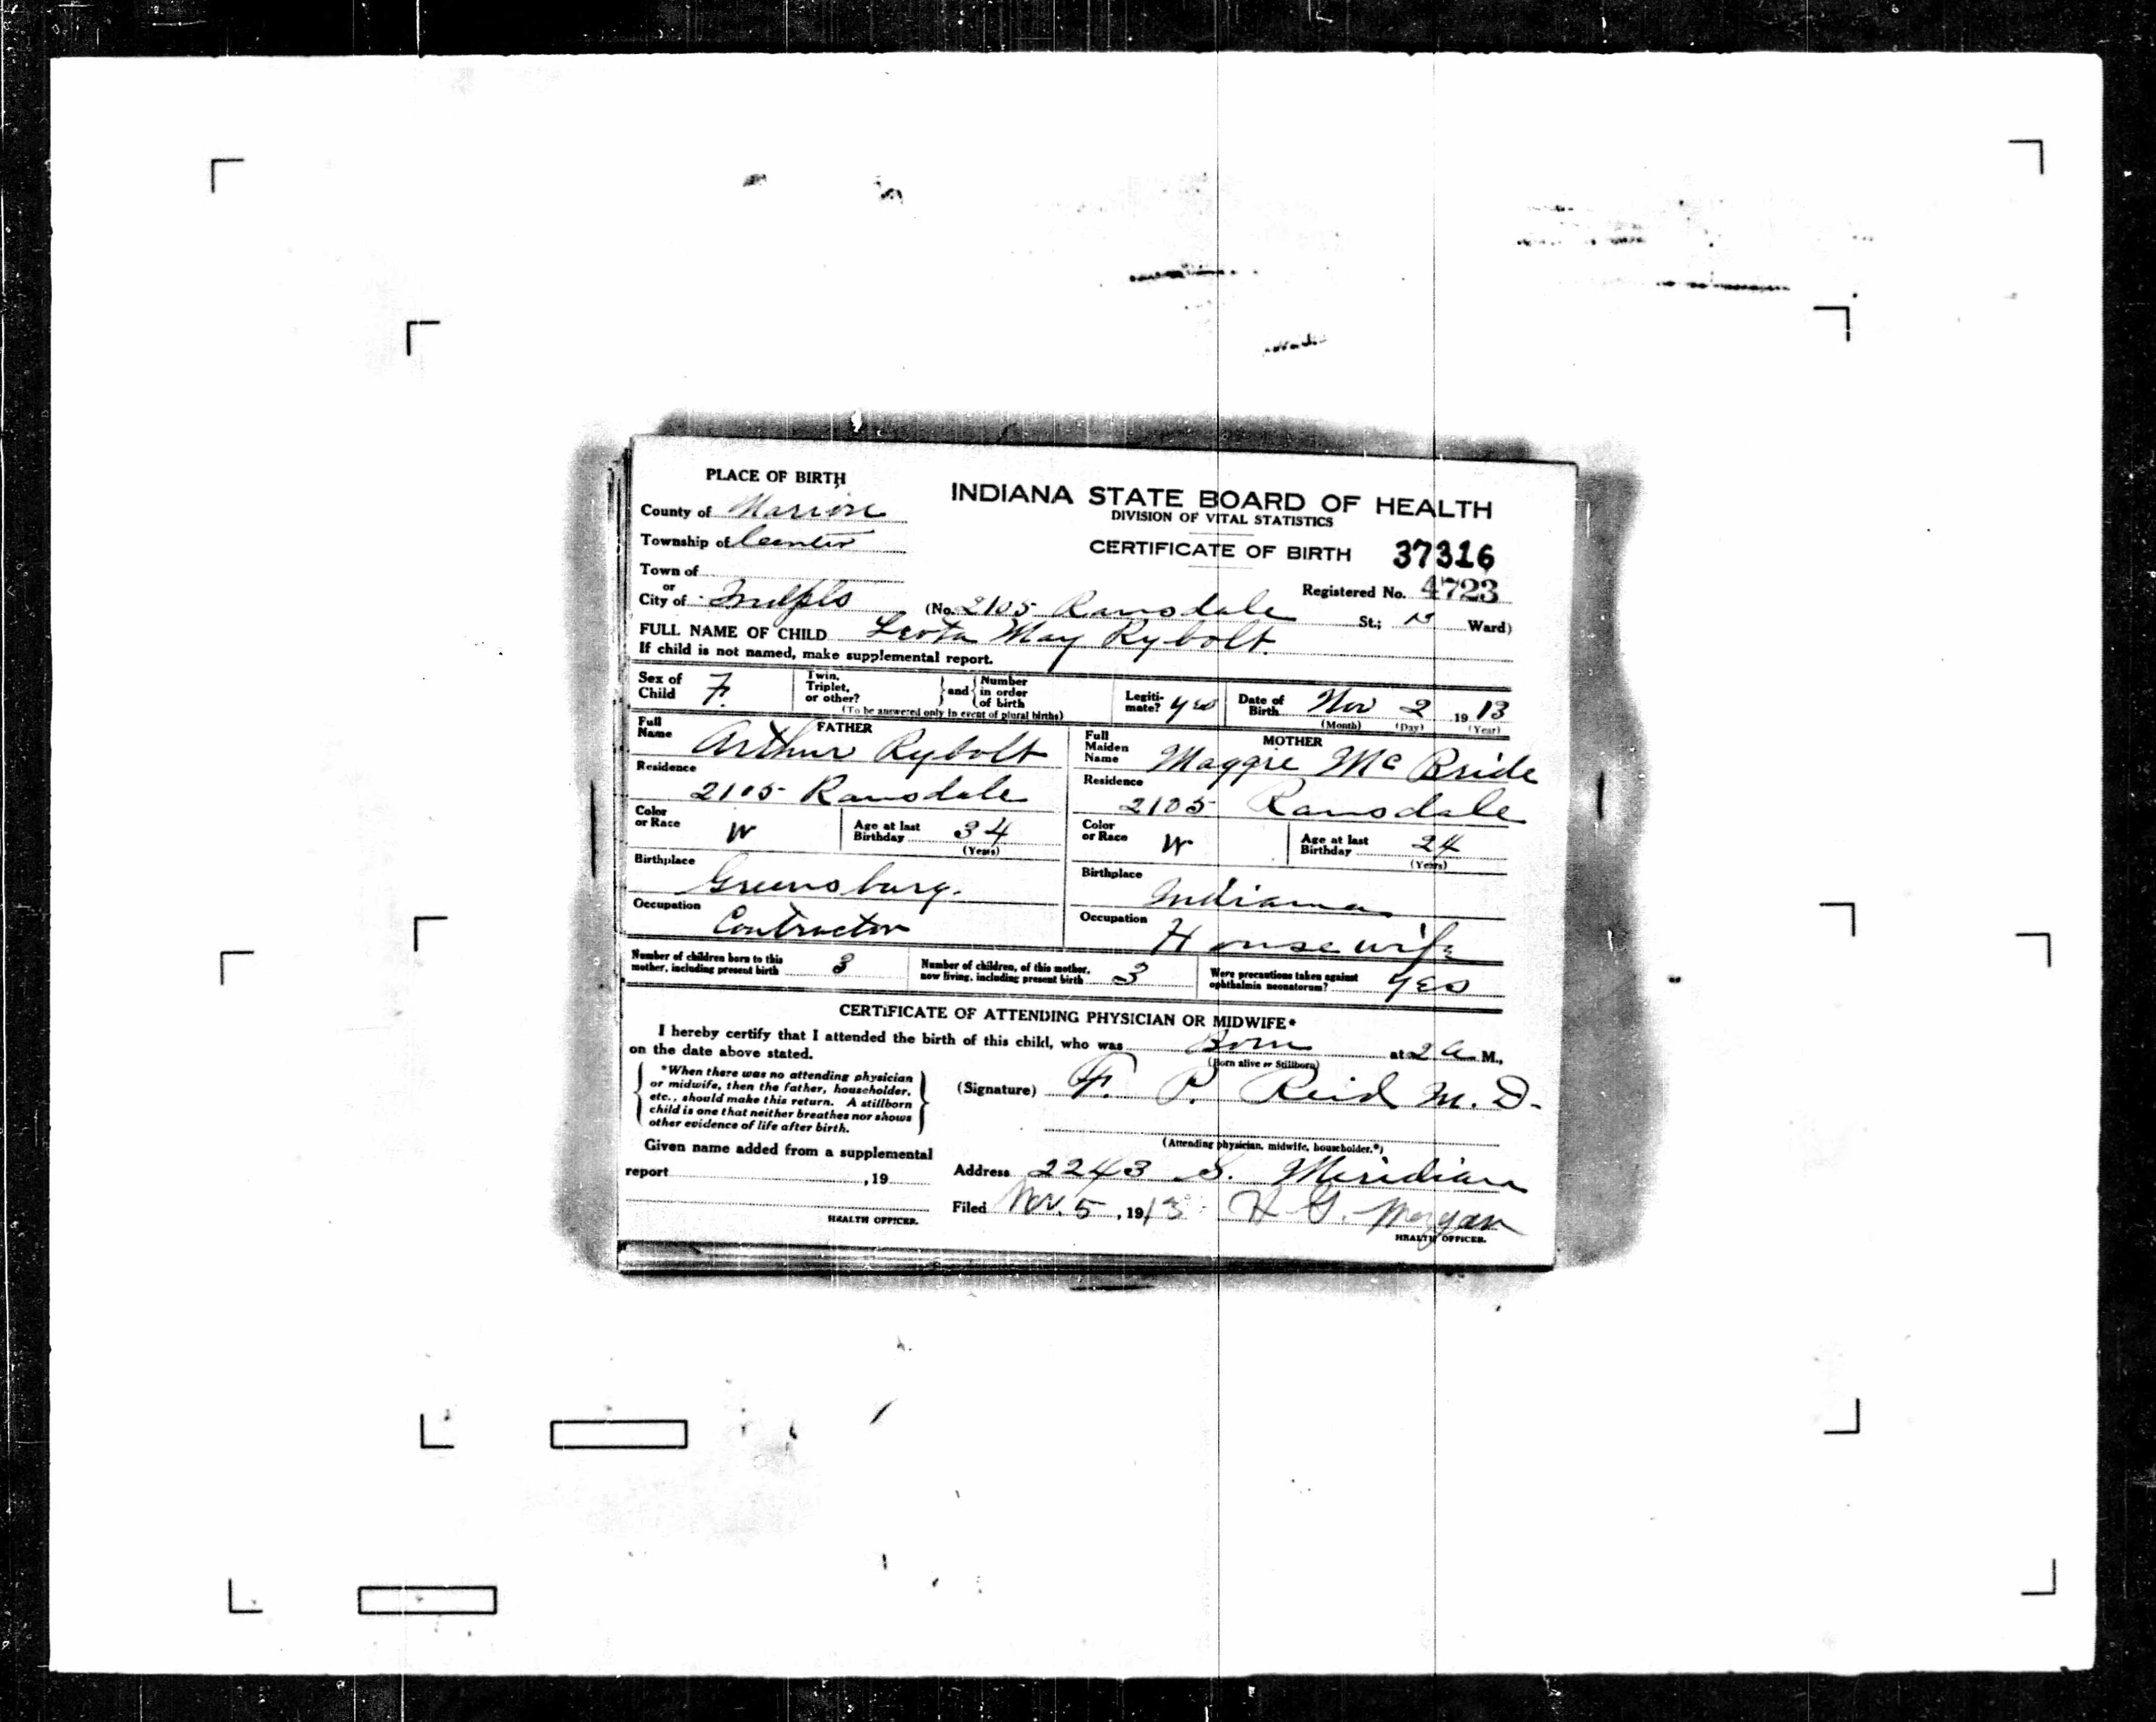 PLACE OF BIRTH
County of Marion
Township of Center
Town of
or
City of Indpls
INDIANA STATE BOARD OF HEALTH
DIVISION OF VITAL STATISTICS
CERTIFICATE OF BIRTH 37316
Registered No. 4723
(No. 2105 Ransdale St.; Ward)
FULL NAME OF CHILD Leota May Rybolt.
If child is not named, make supplemental report.
Sex of Child F.
Twin, Triplet, or other? and Number in order of birth
(To be answered only in event of plural births)
Legiti-mate? yes
Date of Birth Nov 2 1913
(Month) (Day) (Year)
FATHER
Full Name Arthur Rybolt
Residence
2105 Ransdale
Color or Race W
Age at last Birthday 34
(Years)
Birthplace
Greensburg.
Occupation
Contractor
MOTHER
Full Maiden Name Maggie Mc Bride
Residence
2105 Ransdale
Color or Race W
Age at last Birthday 24
(Years)
Birthplace
Indiana
Occupation
Housewife
Number of children born to this mother, including present birth 3
Number of children, of this mother, now living, including present birth 3
Were precautions taken against ophthalmia neonatorum? yes
CERTIFICATE OF ATTENDING PHYSICIAN OR MIDWIFE*
I hereby certify that I attended the birth of this child, who was Born at 2 a M.,
(Born alive or Stillborn)
on the date above stated.
*When there was no attending physician
or midwife, then the father, householder,
etc., should make this return. A stillborn
child is one that neither breathes nor shows
other evidence of life after birth.
(Signature) F. P. Reid M. D.
(Attending physician, midwife, householder.*)
Given name added from a supplemental
report , 19
HEALTH OFFICER.
Address 2243 S. Meridian
Filed Nov. 5, 1913 H. G. Morgan
HEALTH OFFICER.